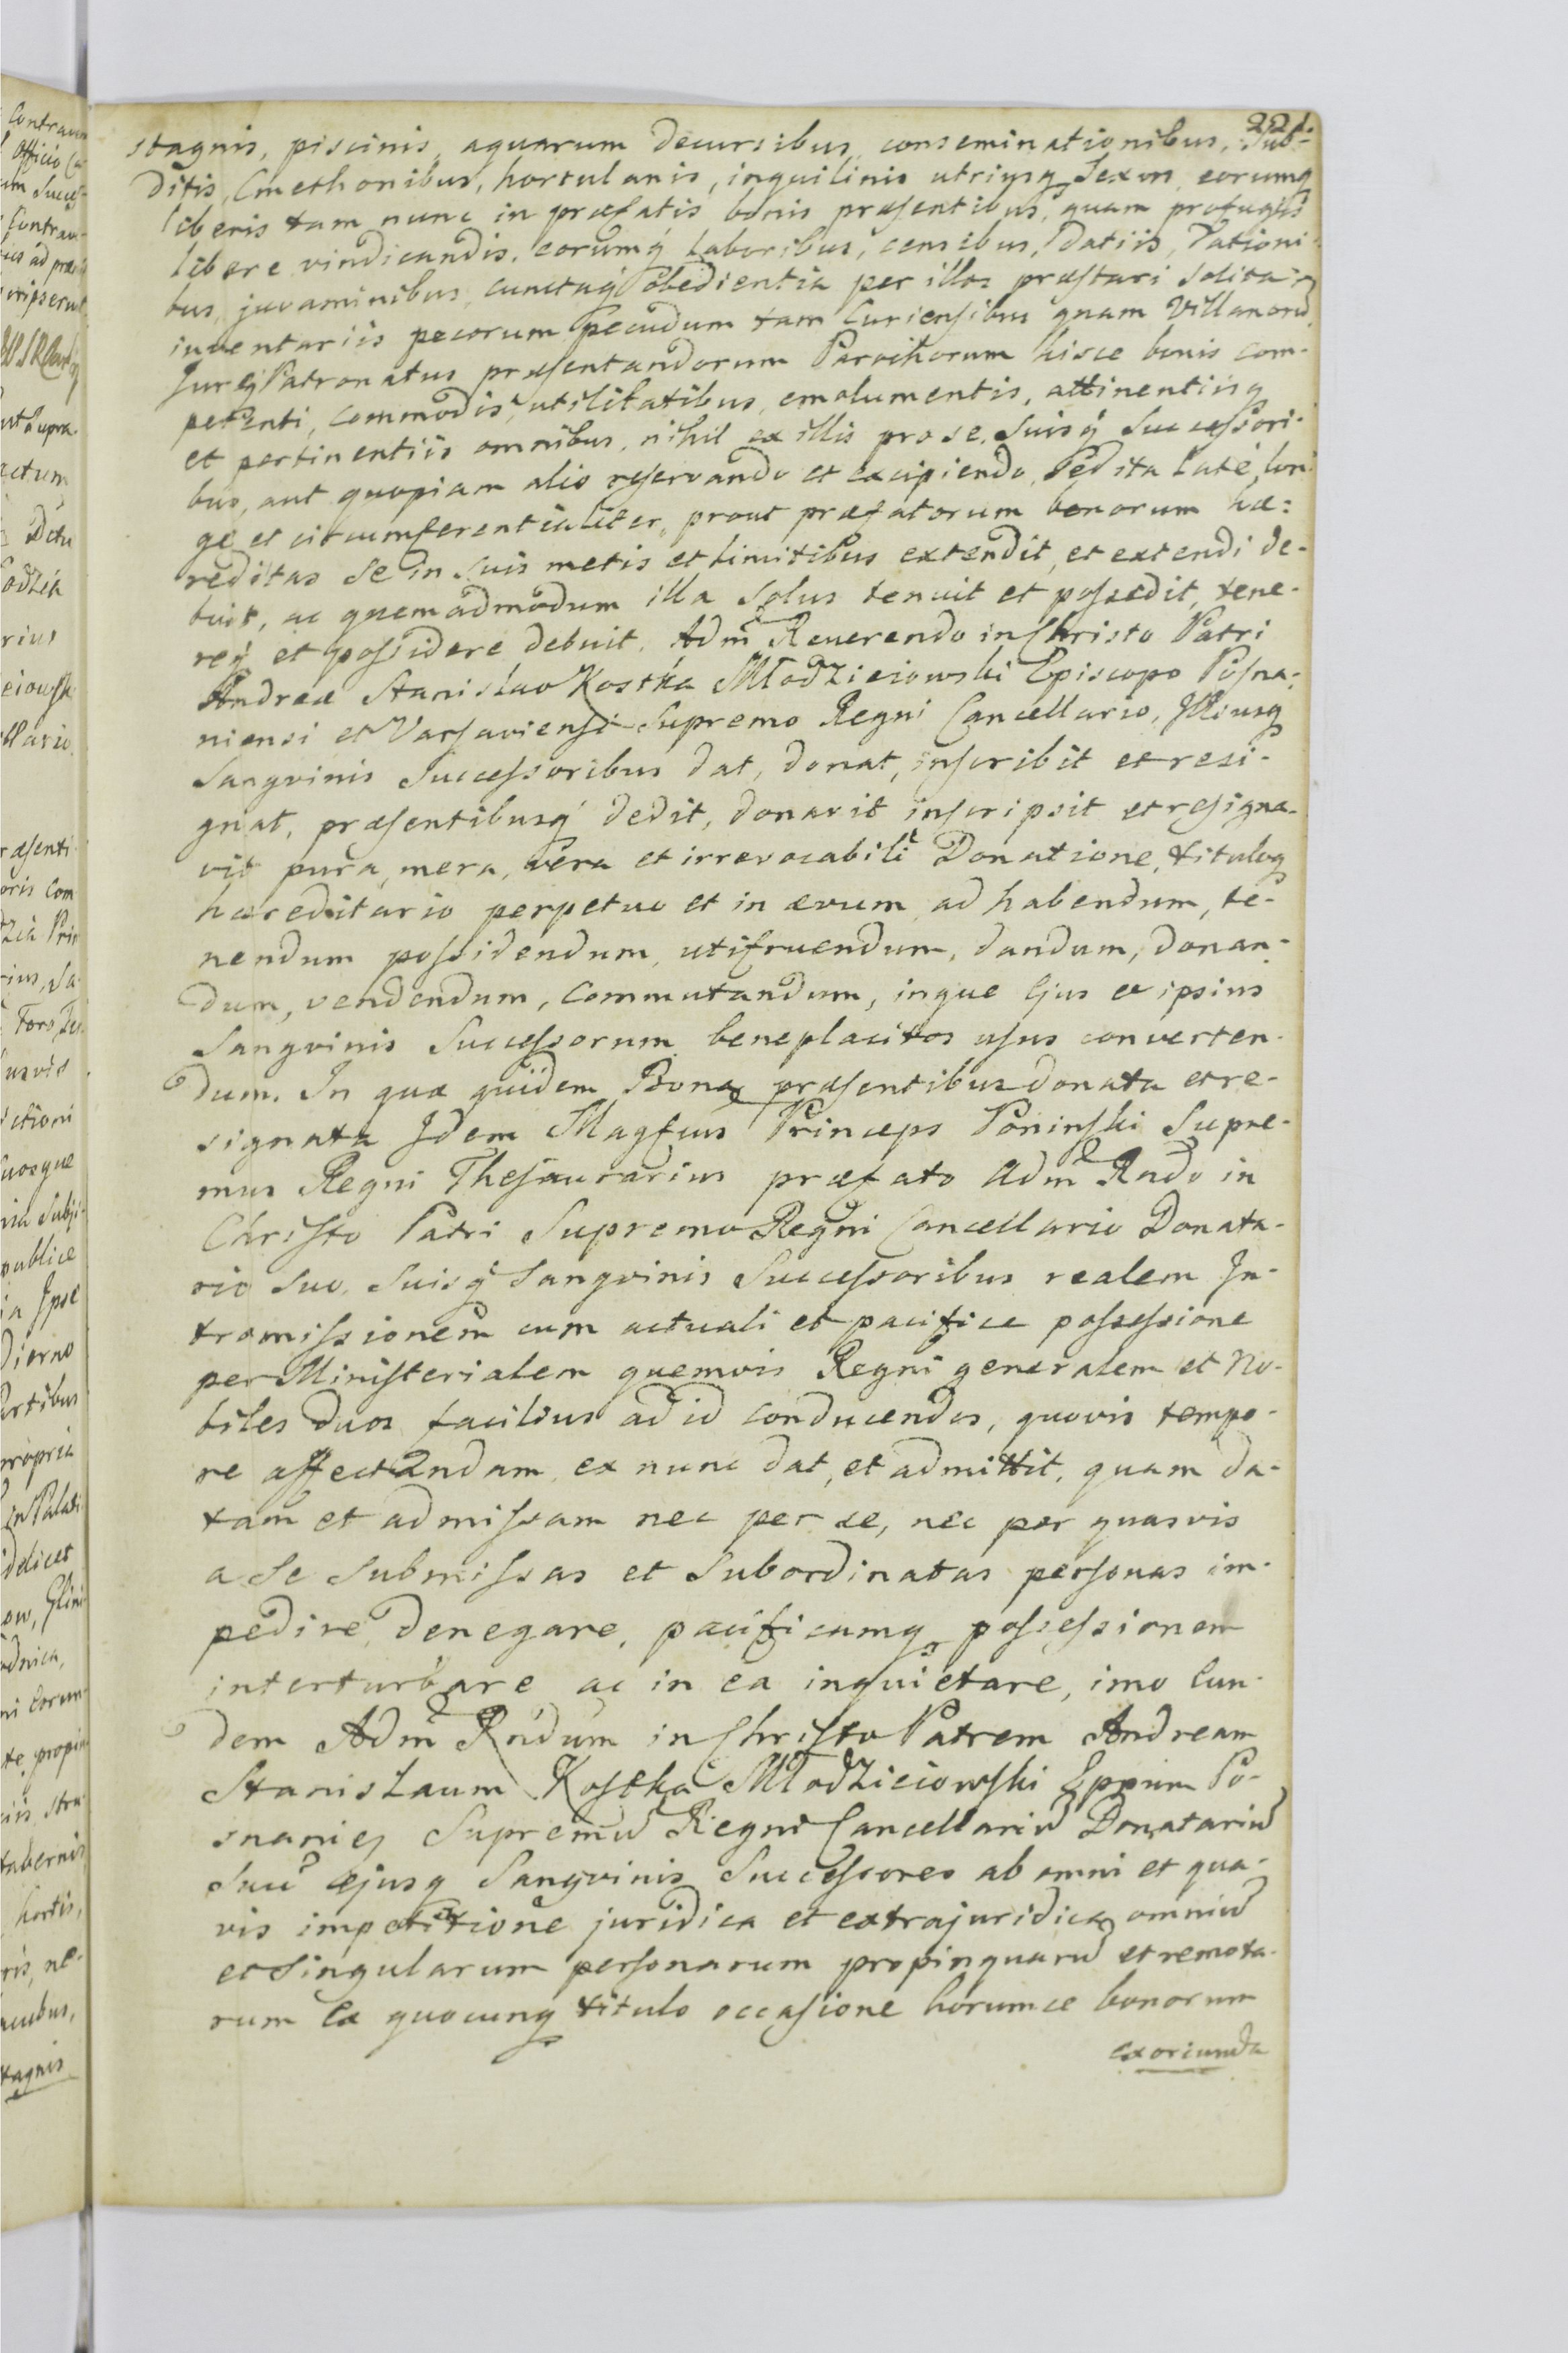 221.
stagnis, piscinis, aquarum decursibus, conseminationibus, Sub-
ditis, Cmethonibus, hortulanis, inquilinis utriusq Sexus, eorumq
liberis tam nunc in præfatis bonis præsentibus, quam profugis
libere vindicandis, eorumq laboribus, censibus, datiis, dationi-
bus, juvaminibus, cunctaq obedientia per illos præstari solita,
inventariis pecorum pecudum tam Curiensibus quam Villanorũ
Jureq Patronatus præsentandorum Parochorum hisce bonis com-
petenti, commodis, utilitatibus, emolumentis, attinentiisq
et pertinentiis omnibus, nihil ex illis pro se, Suisq Successori-
bus, aut quopiam alio reservando et excipiendo, sed ita late, lon-
ge et circumferentialiter, prout præfatorum bonorum hæ-
reditas se in suis metis et limitibus extendit, et extendi de-
buit, ac quemadmodum illa Solus tenuit et possedit, tene-
req et possidere debuit. Adm̃ Reverendo in Christo Patri
Andreæ Stanislao Kostka Młodzieiowski Episcopo Posna-
niensi et Varsaviensi Supremo Regni Cancellario, Illiusq
Sangvinis Successoribus dat, donat, inscribit et resi-
gnat, præsentibusq dedit, donavit inscripsit et resigna-
vit pura, mera, vera et irrevocabili Donatione, tituloq
hæreditario perpetuo et in ævum ad habendum, te-
nendum possidendum, utifruendum, dandum, donan-
dum, vendendum, commutandum, inque Ejus et ipsius
Sangvinis Successorum beneplacitos usus converten-
dum. In quæ quidem Bona præsentibus donata et re-
signata Idem Magfcus Princeps Poninski Supre-
mus Regni Thesaurarius præfato Adm̃ Rndo in
Christo Patri Supremo Regni Cancellario Donata-
rio suo, suisq Sangvinis Successoribus realem In-
tromissionem cum actuali et pacifica possessione
per Ministerialem quemvis Regni generalem et No-
biles duos facilius ad id conducendos, quovis tempo-
re affectandam ex nunc dat, et admittit, quam da-
tam et admissam nec per se, nec per quasvis
a se submissas et Subordinatas personas im-
pedire, denegare, pacificamq possessionem
interturbare ac in ea inquietare, imo Eun-
dem Adm̃ Rndum in Christo Patrem Andream
Stanislaum Kostka Młodzieiowski Eppum Po-
snanieñ Supremũ Regni Cancellariũ Donatariũ
Suũ ejusq Sangvinis Successores ab omni et qua-
vis impetitione juridica et extrajuridica omniũ
et singularum personarum propinquarũ et remota-
rum Ex quocunq titulo occasione horumce bonorum
exoriunda